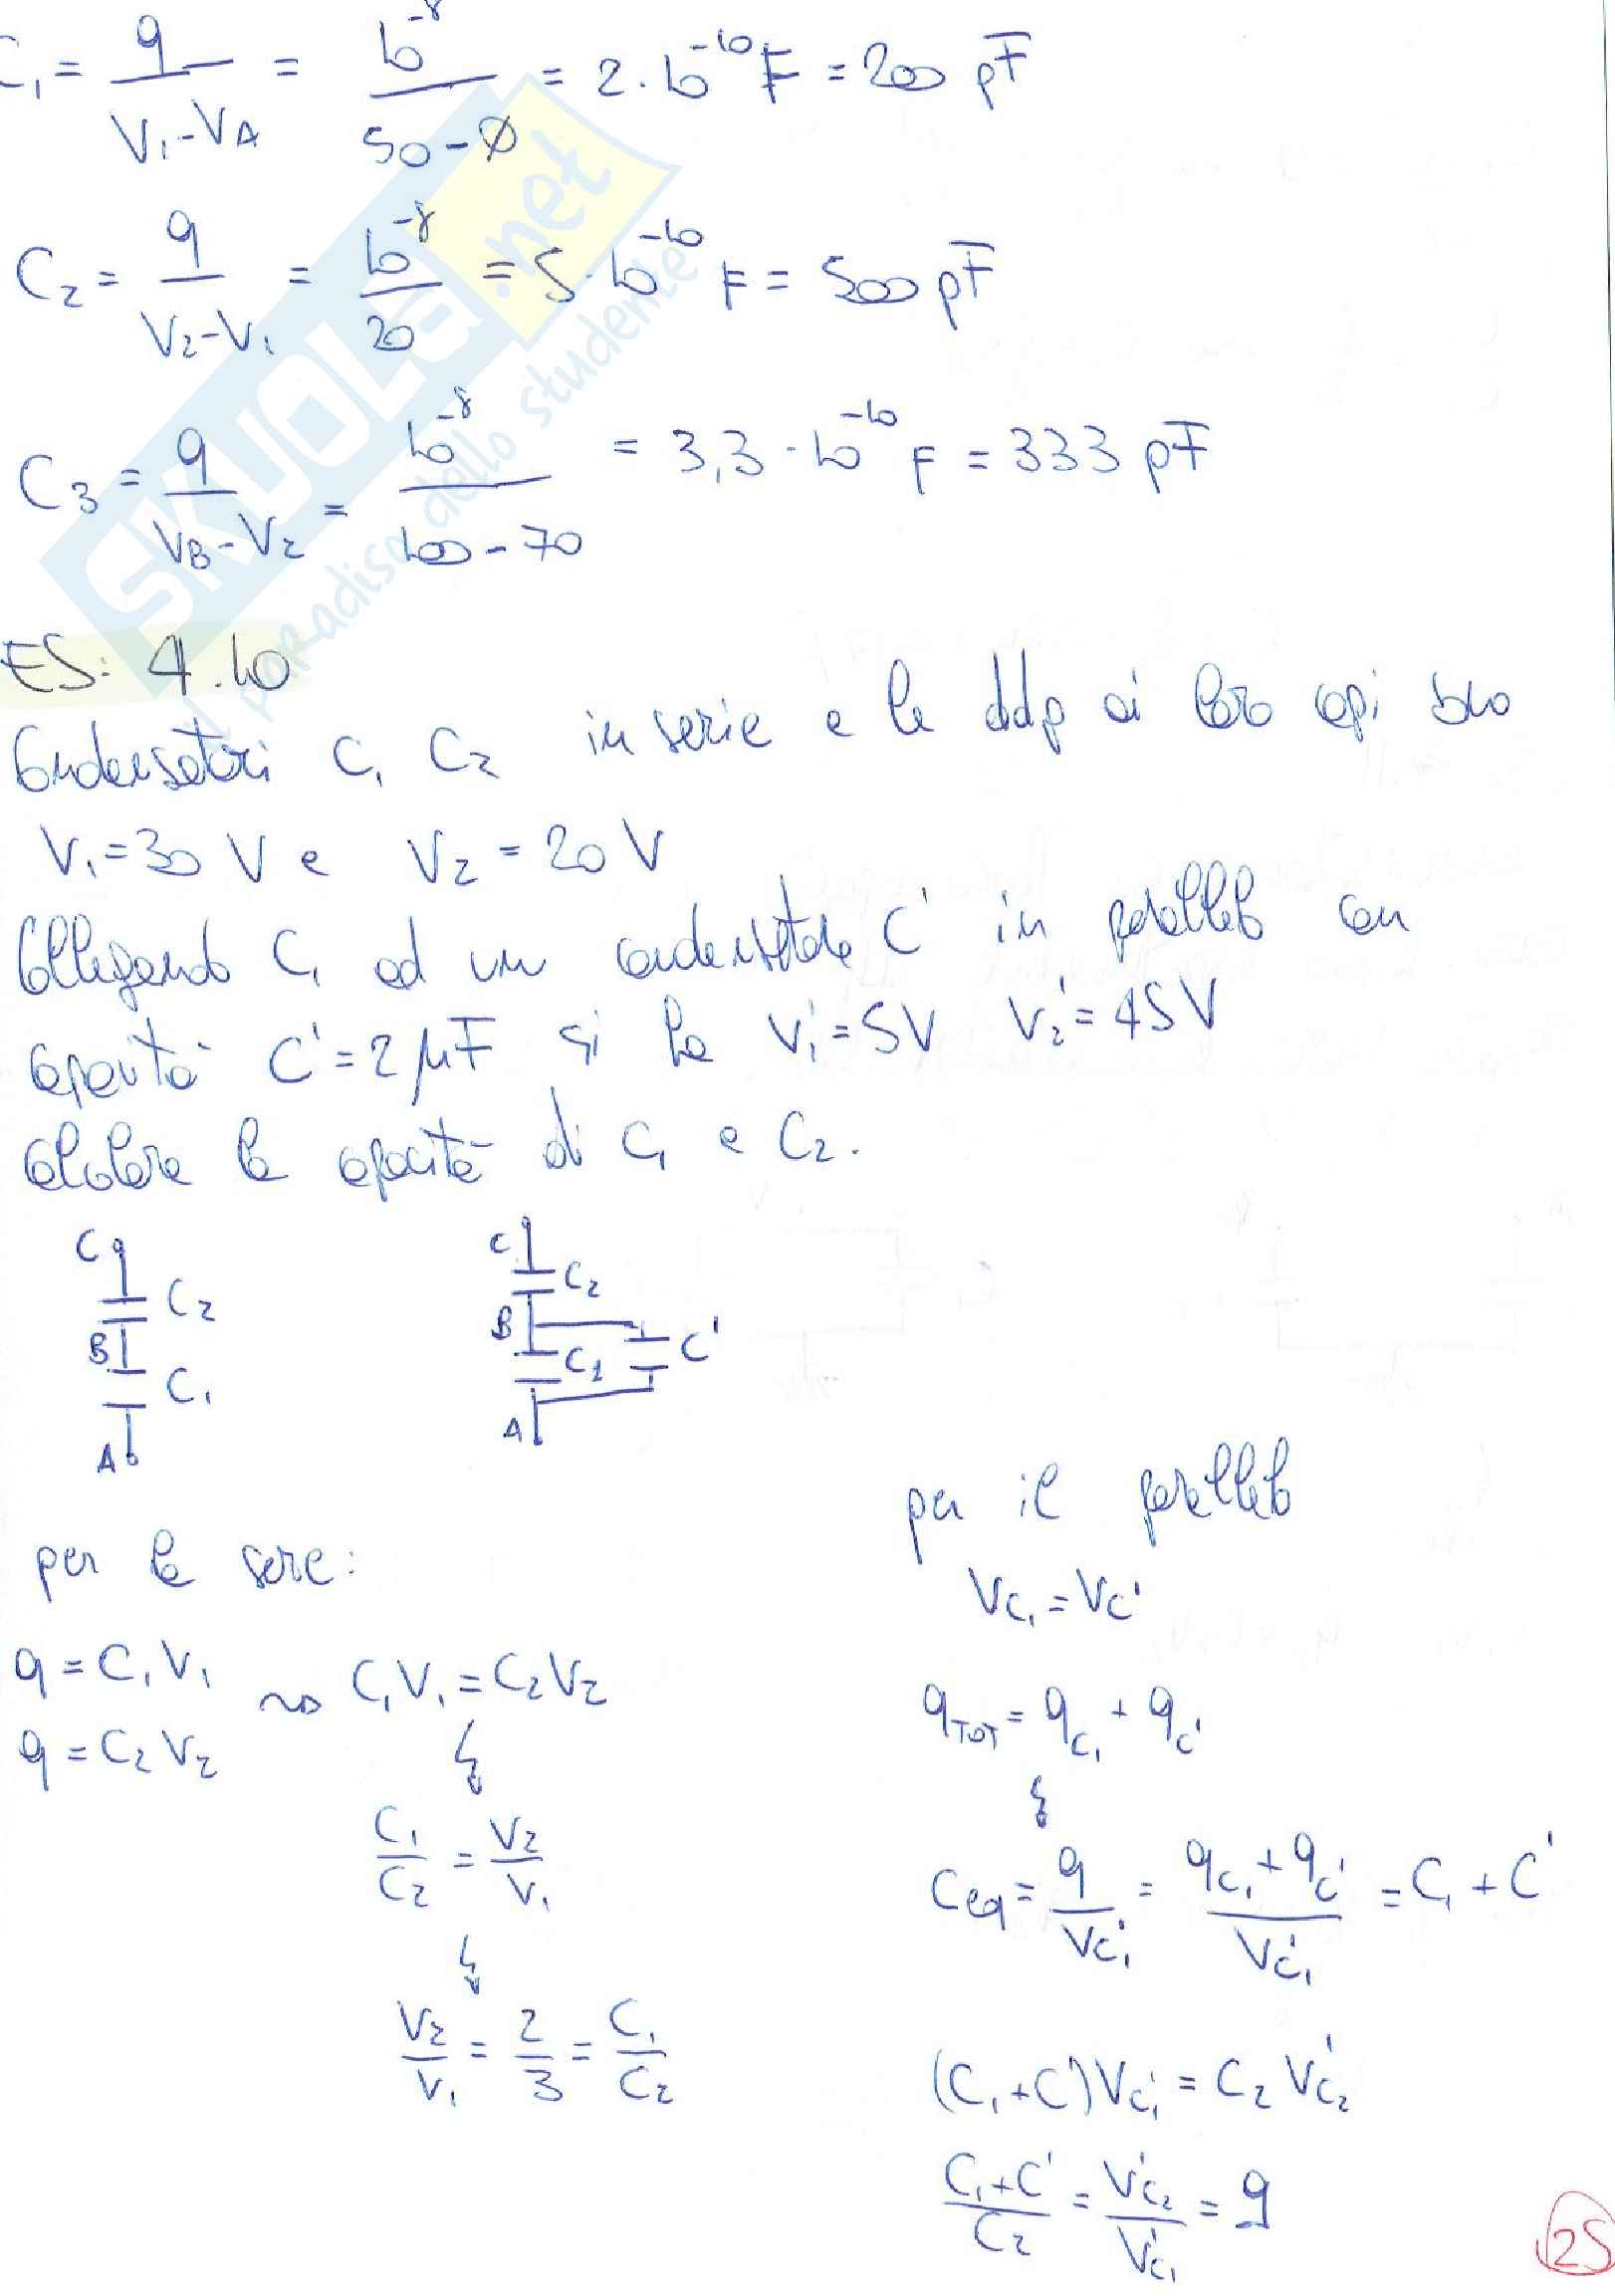 C₁ = q / (V₁-VA) = 10⁻⁸ / (50-0) = 2·10⁻¹⁰ F = 200 pF
C₂ = q / (V₂-V₁) = 10⁻⁸ / 20 = 5·10⁻¹⁰ F = 500 pF
C₃ = q / (VB-V₂) = 10⁻⁸ / (100-70) = 3,3·10⁻¹⁰ F = 333 pF
SKUOLA.net
paradiso dello studente
ES: 4.10
Condensatori C₁ C₂ in serie e le ddp ai loro capi sono
V₁=30 V e V₂=20 V
Collegando C₁ ad un condensatore C' in parallelo con
capacità C'=2 μF si ha V₁'=5V V₂'=45V
calcolare le capacità di C₁ e C₂.
C C₂ B C₁ A
C C₂ B C₁ C' A
per il parallelo
VC₁=VC'
per la serie:
q=C₁V₁
q=C₂V₂
C₁V₁=C₂V₂
C₁/C₂ = V₂/V₁
V₂/V₁ = 2/3 = C₁/C₂
qTOT = qC₁ + qC'
Ceq = q/VC₁' = (qC₁+qC')/VC₁' = C₁+C'
(C₁+C')VC₁' = C₂VC₂'
(C₁+C')/C₂ = VC₂'/VC₁' = 9
25